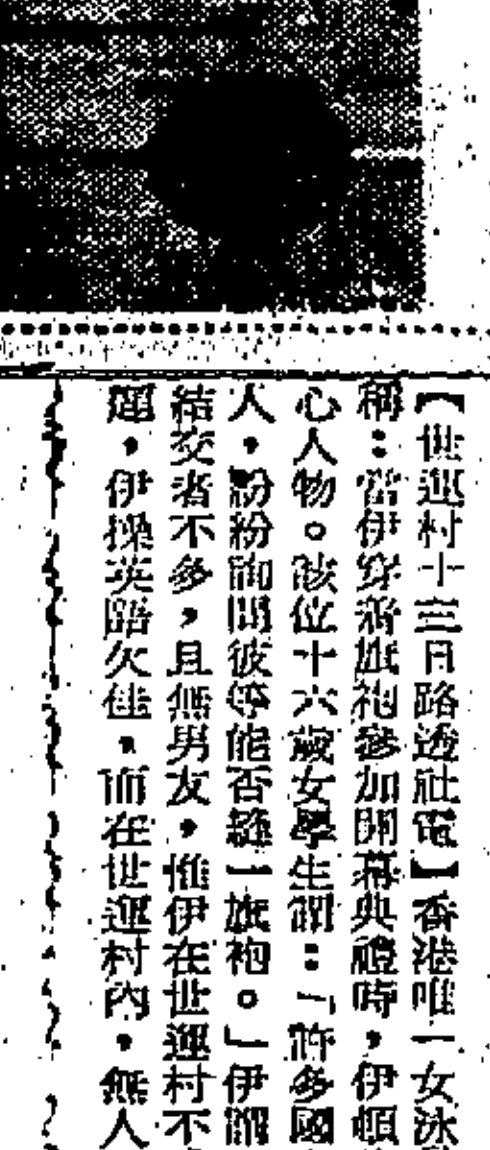 【世運村十三日路透社電】香港唯一女泳
稱：當伊穿着旗袍參加開幕典禮時，伊頓
心人物。該位十六歲女學生謂：「許多國
人，紛紛詢問彼等能否縫一旗袍。」伊謂
結交者不多，且無男友，惟伊在世運村不
運，伊操英語欠佳，而在世運村內，無人